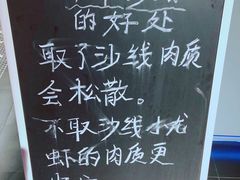 的好处
取了沙线肉质
会松散。
不取沙线小龙
虾的肉质更